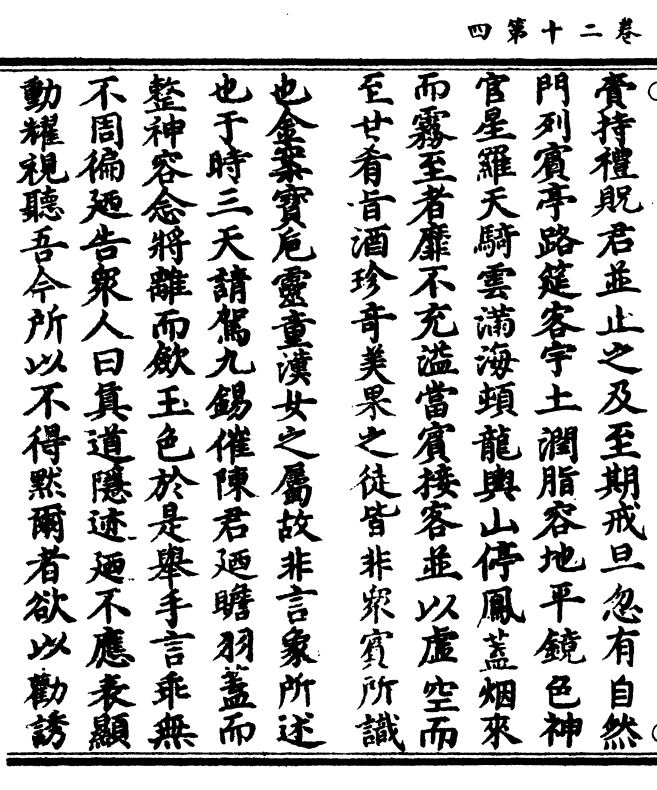 卷二十第四
賷持禮貺君並止之及至期戒旦忽有自然
門列賓亭路筵客宇土潤脂容地平鏡色神
官星羅天騎雲滿海頓龍輿山停鳳蓋烟來
而霧至者靡不充溢當賓接客並以虛空而
至甘肴旨酒珍奇美果之徒皆非衆賓所識
也金案寶巵靈童漢女之屬故非言象所述
也于時三天請駕九錫催陳君廼瞻羽蓋而
整神容念將離而歛玉色於是舉手言乖無
不周徧廼告衆人曰真道隱迹廼不應表顯
動耀視聽吾今所以不得默爾者欲以勸誘